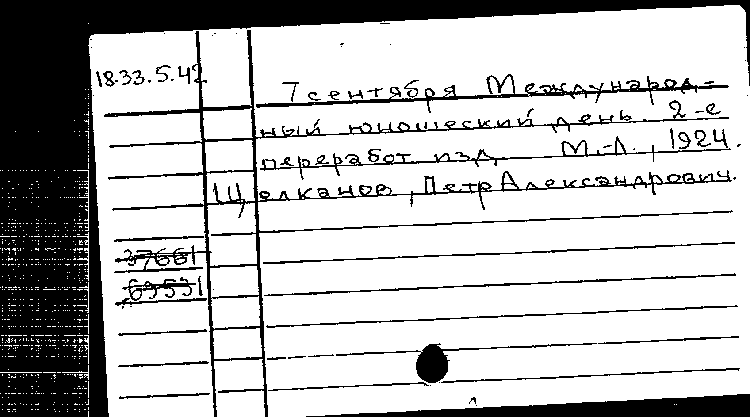 18.33.5.42
7 сентября Международ-
ный юношеский день. 2-е
переработ изд. М.-Л., 1924.
Щелканов, Петр Александрович.
37661
69531